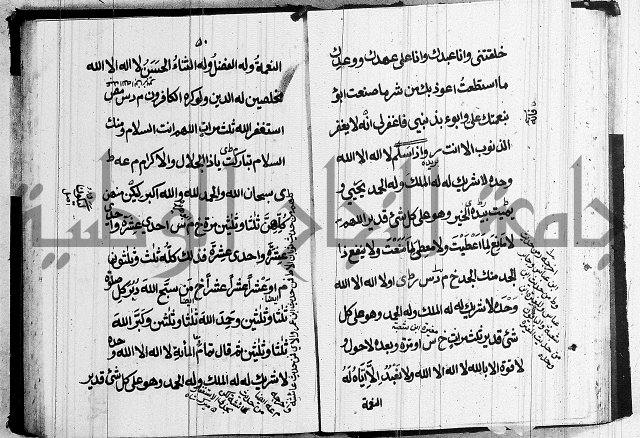 خلقتني وانا عبدك وانا على عهدك ووعدك
ما استطعت اعوذ بك من شر ما صنعت ابوء
بنعمتك علي وابوء بذنبي فاغفر لي انه لا يغفر
الذنوب الا انت واذا سلم لا اله الا الله
وحده لا شريك له له الملك وله الحمد يحيي و
يميت بيده الخير وهو على كل شئ قدير اللهم
لا مانع لما اعطيت ولا معطي لما منعت ولا ينفع ذا
الجد منك الجد خ م د س لا اله الا الله
وحده لا شريك له له الملك وله الحمد وهو على كل
شئ قدير ثلث مرات خ س او مرة وبعده لا حول و
لا قوة الا بالله لا اله الا الله ولا نعبد الا اياه له
النعمة
٥٠
النعمة وله الفضل وله الثناء الحسن لا اله الا الله
مخلصين له الدين ولو كره الكافرون م د س مص
استغفر الله ثلث مرات اللهم انت السلام ومنك
السلام تباركت يا ذا الجلال والاكرام م عه ط
ى سبحان الله والحمد لله والله اكبر يكن منهن
كلهن ثلثا وثلثين مرة خ م س احدى عشرة واحدى
عشرة واحدى عشرة فذلك كله ثلث وثلثون
م او عشرا عشرا عشرا خ من سبح الله دبر كل صلوة
ثلثا وثلثين وحمد الله ثلثا وثلثين وكبر الله
ثلثا وثلثين ثم قال تمام المأية لا اله الا الله وحده
لا شريك له له الملك وله الحمد وهو على كل شئ قدير
جامعة النجاح الوطنية